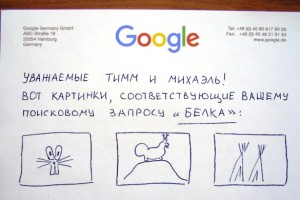 Google Germany GmbH
ABC-Straße 19
20354 Hamburg
Germany
Google
Tel
Fax
www.google.de
УВАЖАЕМЫЕ ТИММ И МИХАЭЛЬ!
ВОТ КАРТИНКИ, СООТВЕТСТВУЮЩИЕ ВАШЕМУ
ПОИСКОВОМУ ЗАПРОСУ «БЕЛКА»: